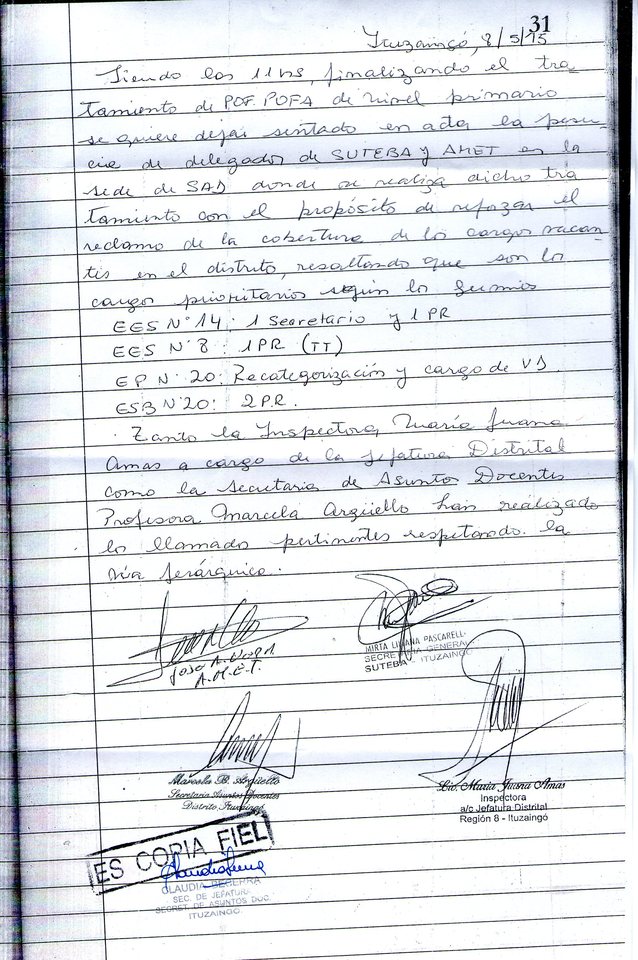 31
Ituzaingó, 8/5/15
Siendo las 11 hs, finalizando el tra-
tamiento de POF. POFA de nivel primario
se quiere dejar sentado en acta la presen-
cia de delegados de SUTEBA y AMET en la
sede de SAD donde se realiza dicho tra
tamiento con el propósito de reforzar el
reclamo de la cobertura de los cargos vacan-
tes en el distrito, resaltando que son los
cargos prioritarios según los Gremios
EES Nº 14: 1 Secretario y 1 PR
EES Nº 8: 1PR (TT)
EP Nº 20: Recategorización y cargo de VD.
ESB Nº 20: 2 PR.
Tanto la Inspectora María Juana
Amas a cargo de la Jefatura Distrital
como la Secretaria de Asuntos Docentes
Profesora Marcela Argüello han realizado
los llamados pertinentes respetando la
vía jerárquica.
A.M.E.T.
MIRTA LILIANA PASCARELL
SECRETARIA GENERAL
SUTEBA - ITUZAINGO
Marcela B. Argüello
Secretaria Asuntos Docentes
Distrito Ituzaingó
Lic. María Juana Amas
Inspectora
a/c Jefatura Distrital
Región 8 - Ituzaingó
ES COPIA FIEL
CLAUDIA
SEC. DE JEFATURA
SECRET. DE ASUNTOS DOC.
ITUZAINGO